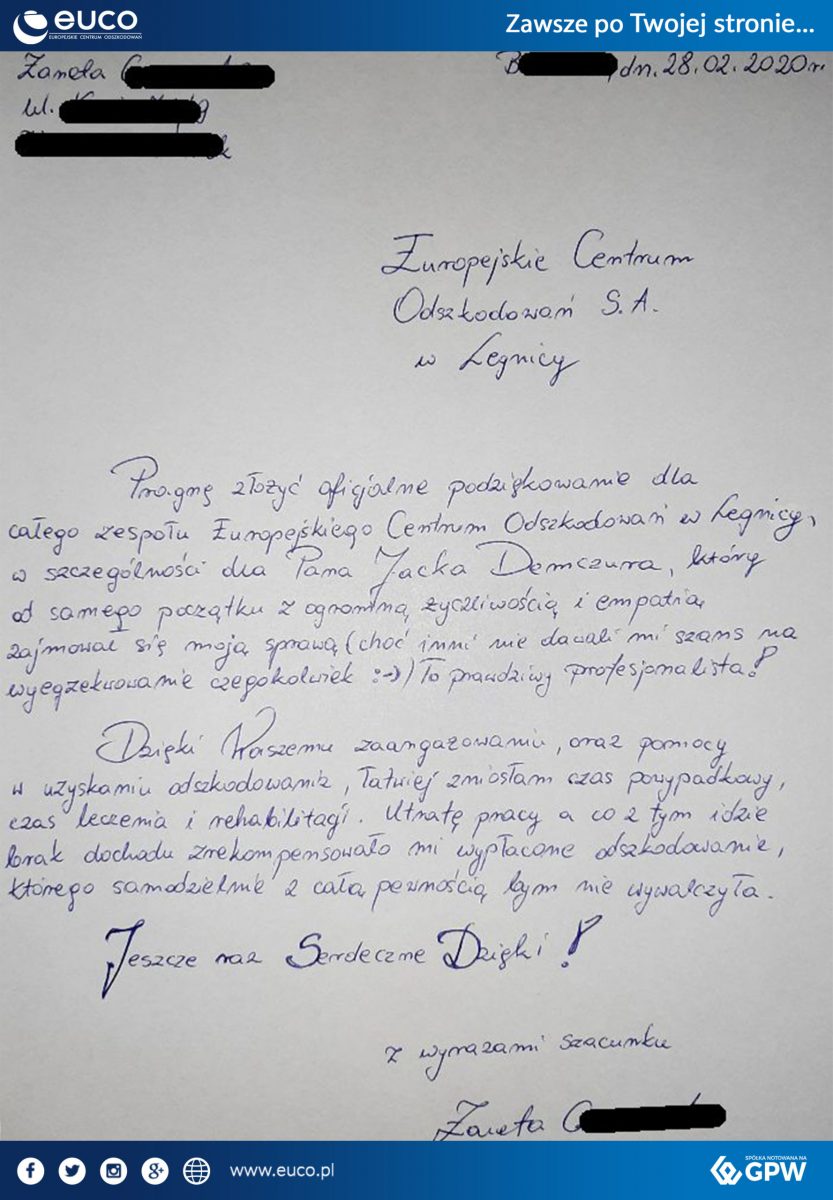 euco
EUROPEJSKIE CENTRUM ODSZKODOWAŃ
Zawsze po Twojej stronie...
Żaneta G
B , dn. 28.02.2020r.
ul.
Europejskie Centrum
Odszkodowań S.A.
w Legnicy
Pragnę złożyć oficjalne podziękowanie dla
całego zespołu Europejskiego Centrum Odszkodowań w Legnicy,
w szczególności dla Pana Jacka Demczura, który
od samego początku z ogromną życzliwością i empatią
zajmował się moją sprawą (choć inni nie dawali mi szans na
wyegzekwowanie czegokolwiek :-)) To prawdziwy profesjonalista!
Dzięki Waszemu zaangażowaniu, oraz pomocy
w uzyskaniu odszkodowania, łatwiej zniosłam czas powypadkowy,
czas leczenia i rehabilitacji. Utratę pracy a co z tym idzie
brak dochodu zrekompensowało mi wypłacone odszkodowanie,
którego samodzielnie z całą pewnością bym nie wywalczyła.
Jeszcze raz Serdeczne Dzięki!
z wyrazami szacunku
Żaneta G
www.euco.pl
SPÓŁKA NOTOWANA NA
GPW